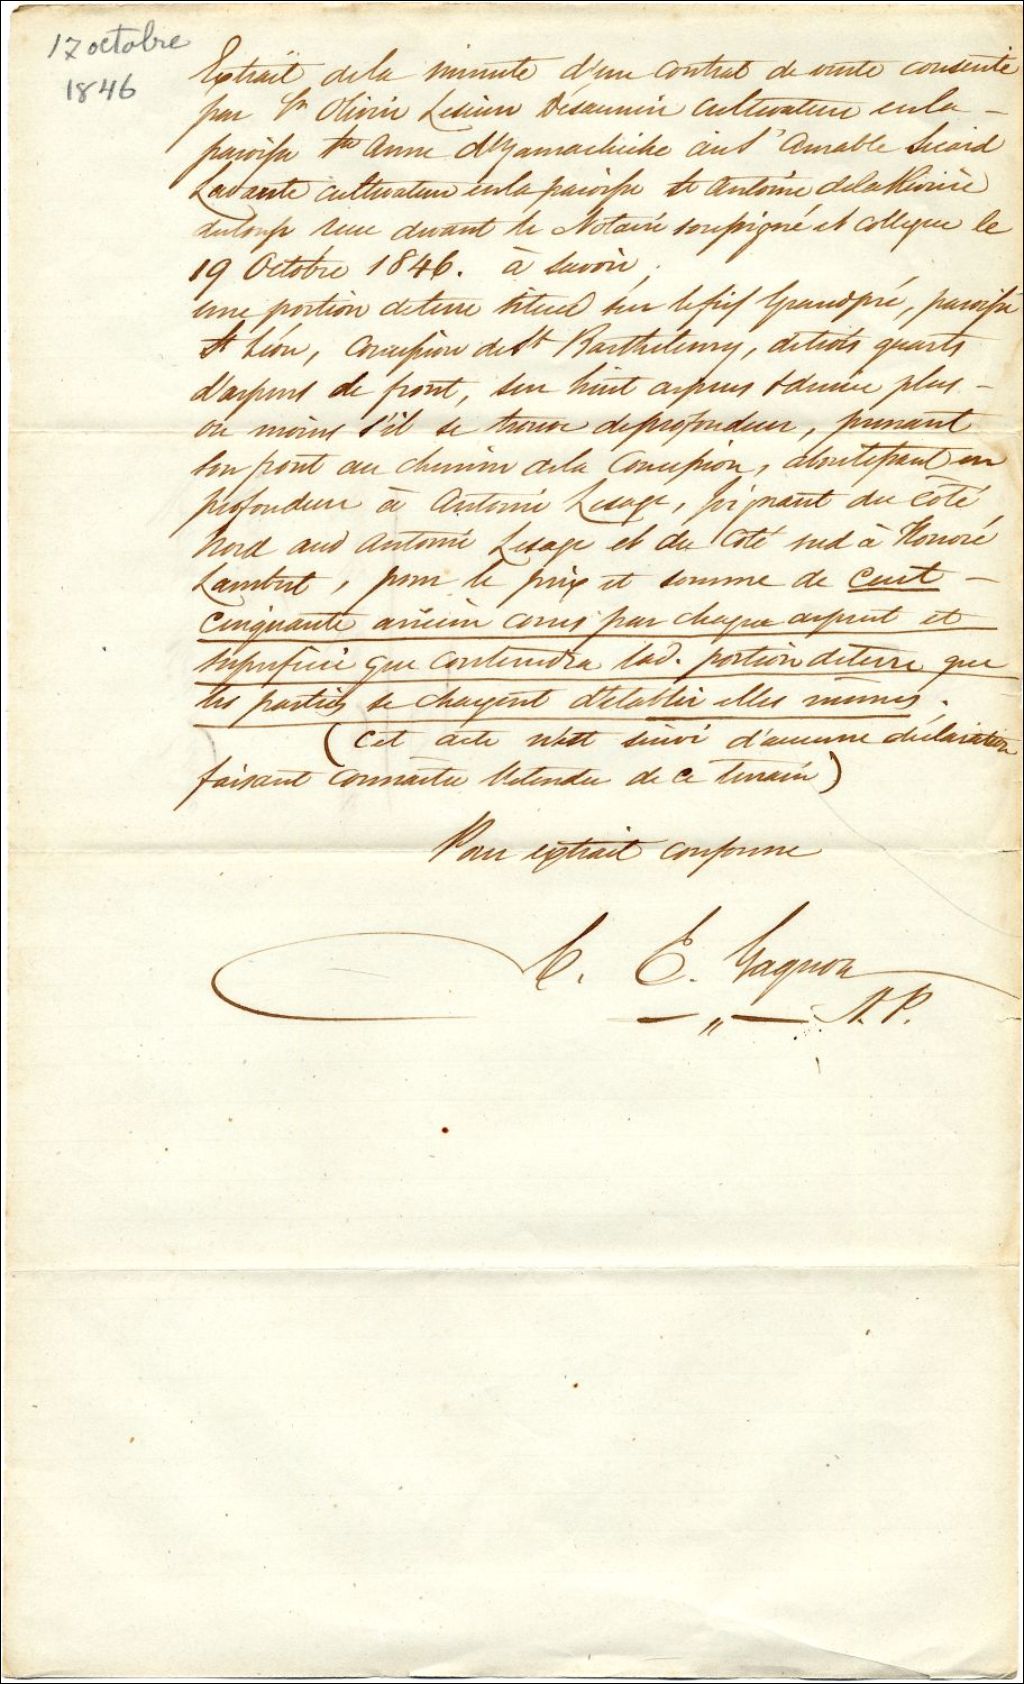 17 octobre
1846
Extrait de la minute d'un contrat de vente consentie
par Sr Olivier Lesieur Désaunier cultivateur en la
paroisse Ste Anne d'Yamachiche au Sr Amable Sicard
cultivateur en la paroisse St Antoine de la Rivière
du loup reçu devant le Notaire soussigné et collegue le
19 Octobre 1846. à savoir,
une portion de terre située sur le fief Grandpré, paroisse
St Léon, Concession de St Barthelemy, de trois quarts
d'arpens de front, sur huit arpens & demie plus
ou moins s'il se trouve de profondeur, prenant
son front au chemin de la Concession, aboutissant en
profondeur à Antoine Lesage, joignant du côté
Nord aud Antoine Lesage et du Côté sud à Honoré
Lambert, pour le prix et somme de cent
cinquante par chaque arpent et
superficie que contiendra lad. portion de terre que
les parties se chargent d'établir elles mêmes.
(Cet acte n'est suivi d'aucune déclaration
faisant connaître l'etendue de ce terrain)
Pour extrait conforme
C. E. Gagnon
N. P.